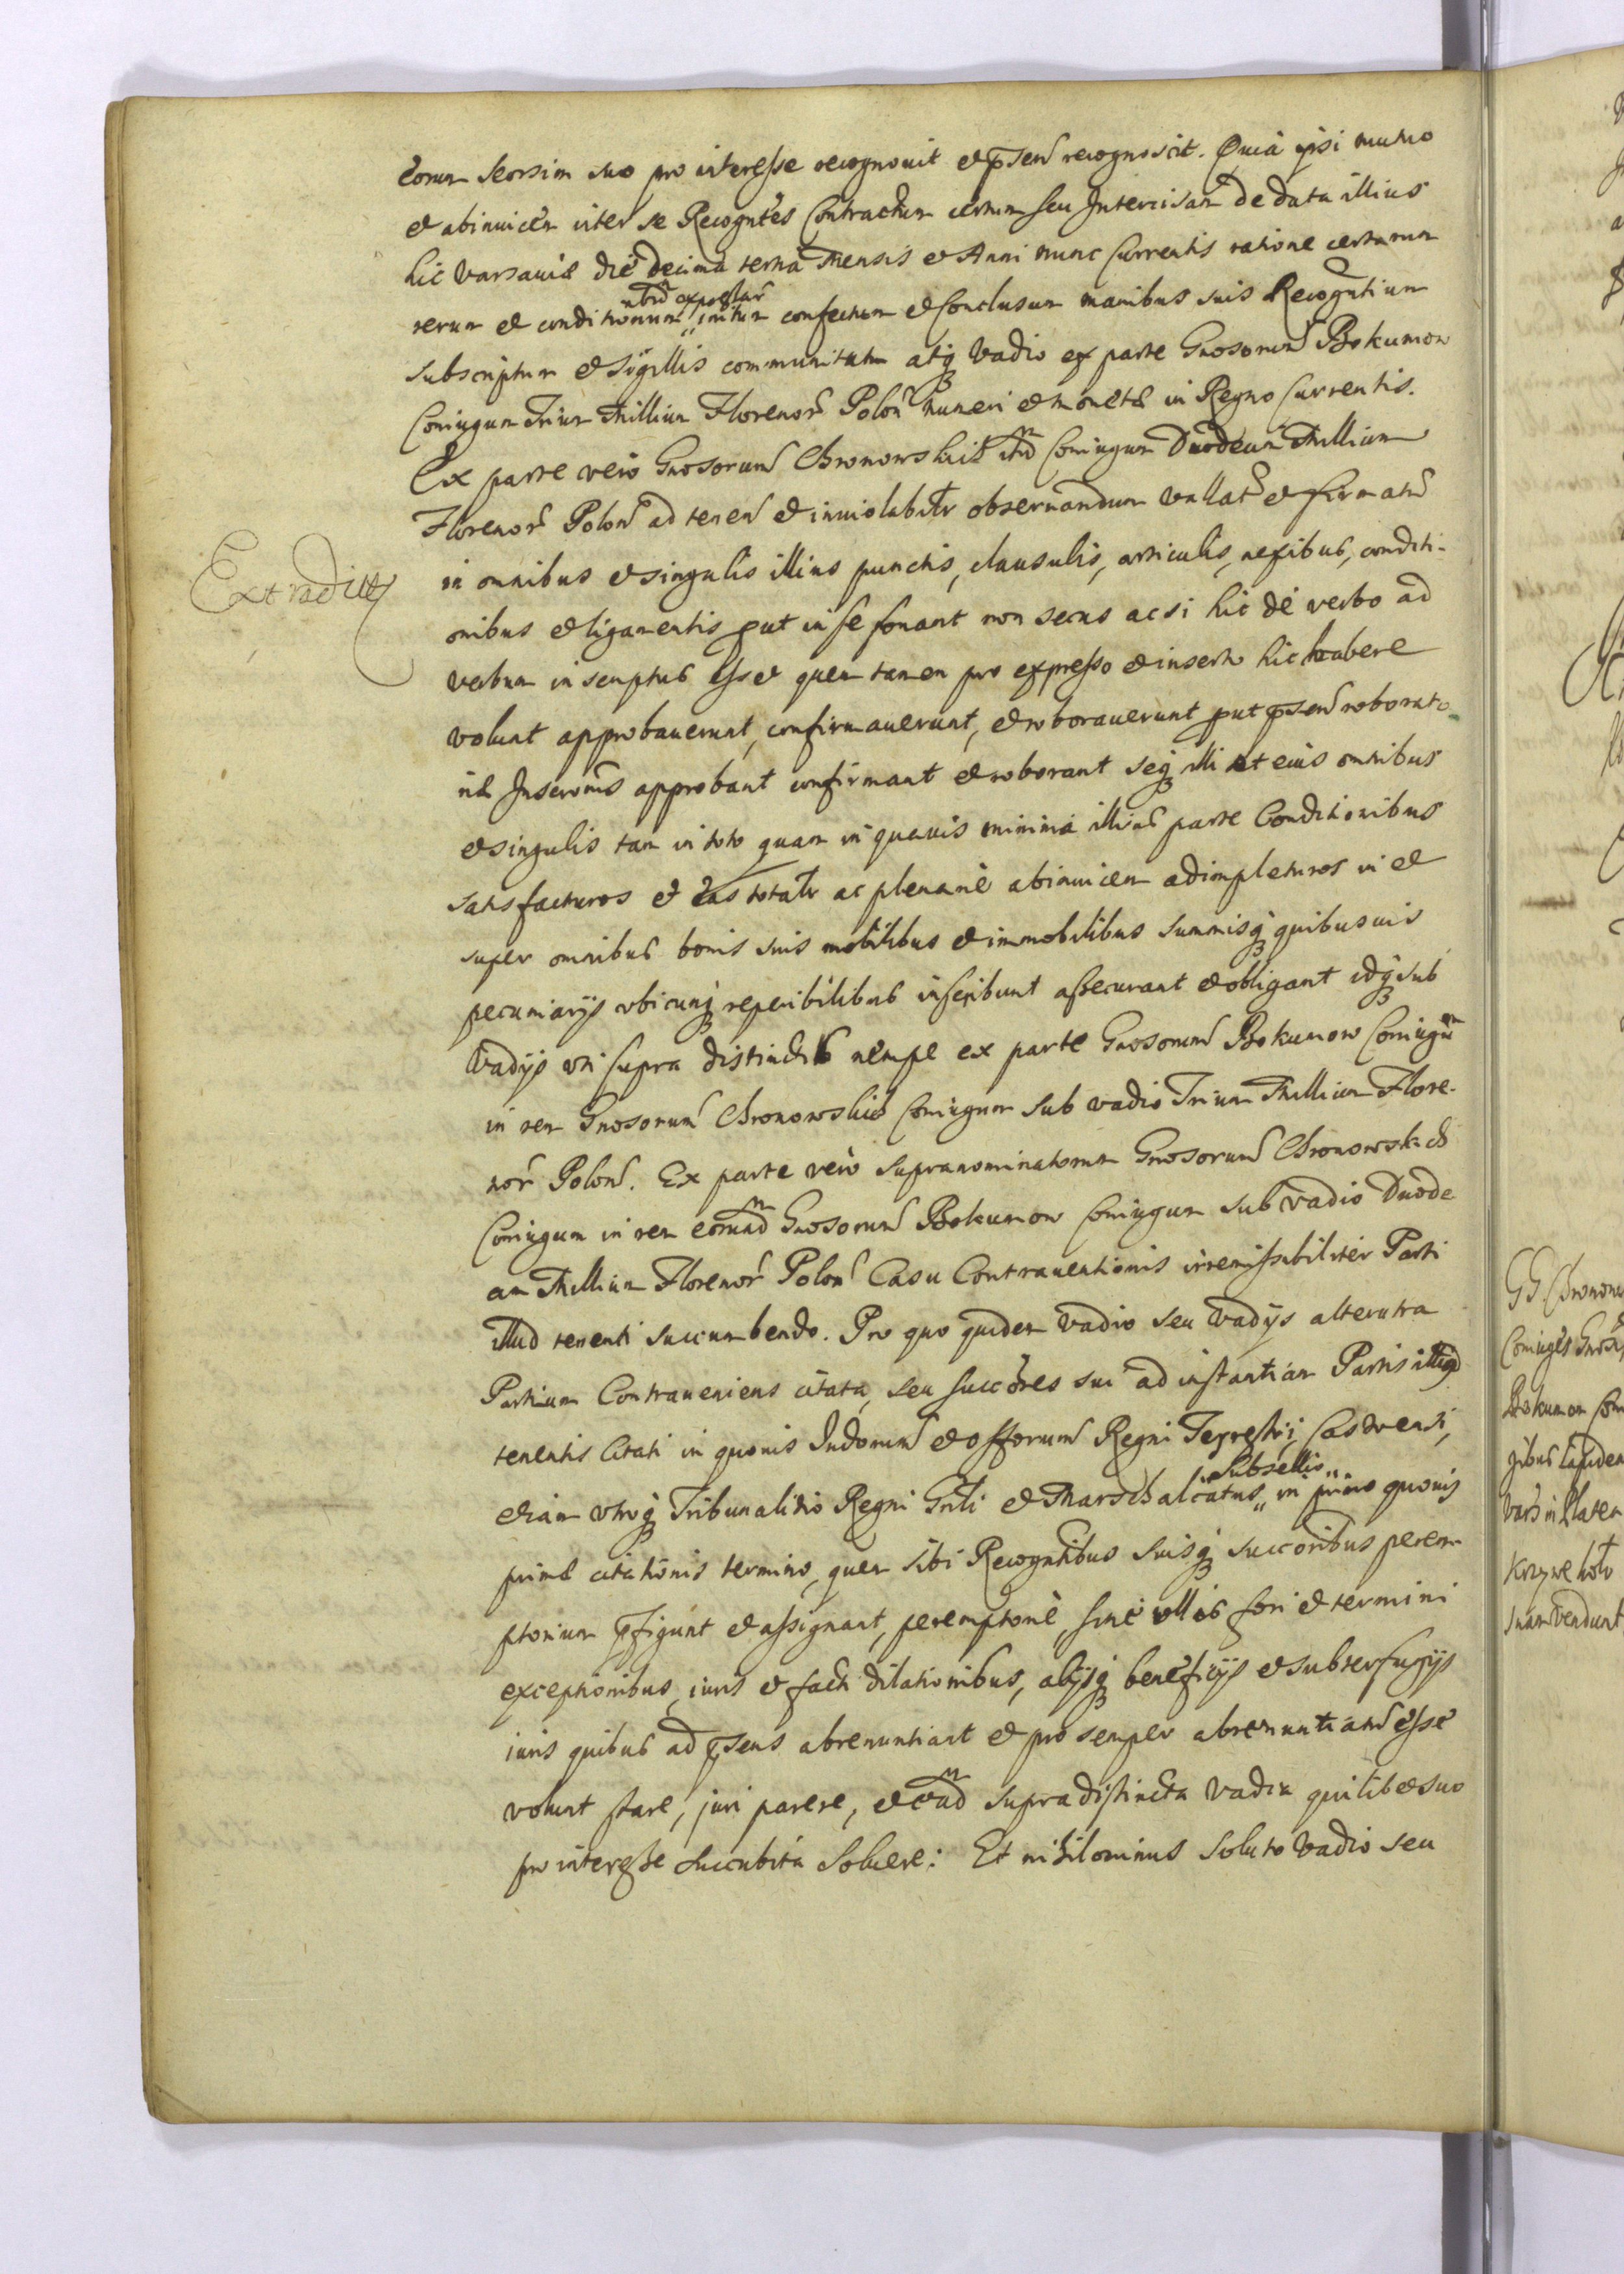 eorum seorsim suo pro interesse recognovit et pñsen recognoscit. Quia ipsi mutuo
et abinvicem inter se Recogntes Contractum certum seu Intercisam de data illius
hic Varsaviæ die decima tertia Mensis et Anni nunc Currentis ratione certarum
rerum et conditionum „ initum confectum et Conclusum manibus suis Recogntium
subscriptum et Sigillis communitum atq3 Vadio ex parte Gnosorum Bokumow
Coniugum Trium Millium Florenor Polon numeri et monetæ in Regno Currentis.
Ex parte vero Gnosorum Chronowskich Coniugum Duodecim Millium
Florenor Polon ad tenen et inviolabilr observandum vallat et firmatu
Extradit
in omnibus et singulis illius punctis, clausulis, articulis, nexibus, conditi-
onibus et ligamentis put in se sonant non secus ac si hic de verbo ad
verbum inscriptus esset quem tamen pro expresso et inserto hic habere
volunt approbaverunt, confirmaverunt, et roboraverunt put pñsen roborato
approbant confirmant et roborant seq3 illi et eius omnibus
et singulis tam in toto quam in quavis minima illius parte Conditionibus
satisfacturos et eas totalr ac plenarie abinvicem adimpleturos in et
super omnibus bonis suis mobilibus et immobilibus summisq3 quibusvis
pecuniarijs ubicunq3 reperibilibus inscribunt assecurant et obligant idq3 sub
Vadijs uti supra distinctis nempe ex parte Gnosorum Bokumow Coniugum
in rem Gnosorum Chronowskich Coniugum sub vadio Trium Millium Flore-
nor Polon. Ex parte vero supranominatorum Gnosorum Chronowskich
Coniugum in rem eorund Gnosorum Bokumow Coniugum sub vadio Duode
cim Millium Florenor Polon Casu Contraventionis irremissibiliter Parti
illud tenenti succumbendo. Pro quo quidem Vadio seu Vadijs alterutra
Partium Contraveniens citata, seu succores sui ad instantiam Partis
tenentis Citati in quovis Iudorum et offorum Regni Terrestri, Castrensi,
Subsellio
etiam utroq3 Tribunalitio Regni Gnli et Marschalcatus „ in primo quovis
primæ citationis termino, quem sibi Recogntibus suisq3 succoribus perem-
ptorium pfigunt et assignant, peremptorie, sine ullis fori et termini
exceptionibus, iuris et facti dilationibus, alijsq3 beneficijs et subterfugijs
iuris quibus ad pñsens abrenuntiant et pro semper abrenuntiatu esse
volunt stare, juri parere, et ead supradistincta Vadia quilibet suo
pro interesse succubita solvere: Et nihilominus soluto Vadio seu
GG. Chronow
Coniuges Gnos
Bokumow Con
gibus lapidem
Vars in Platea
Krzywe koło
suam vendunt